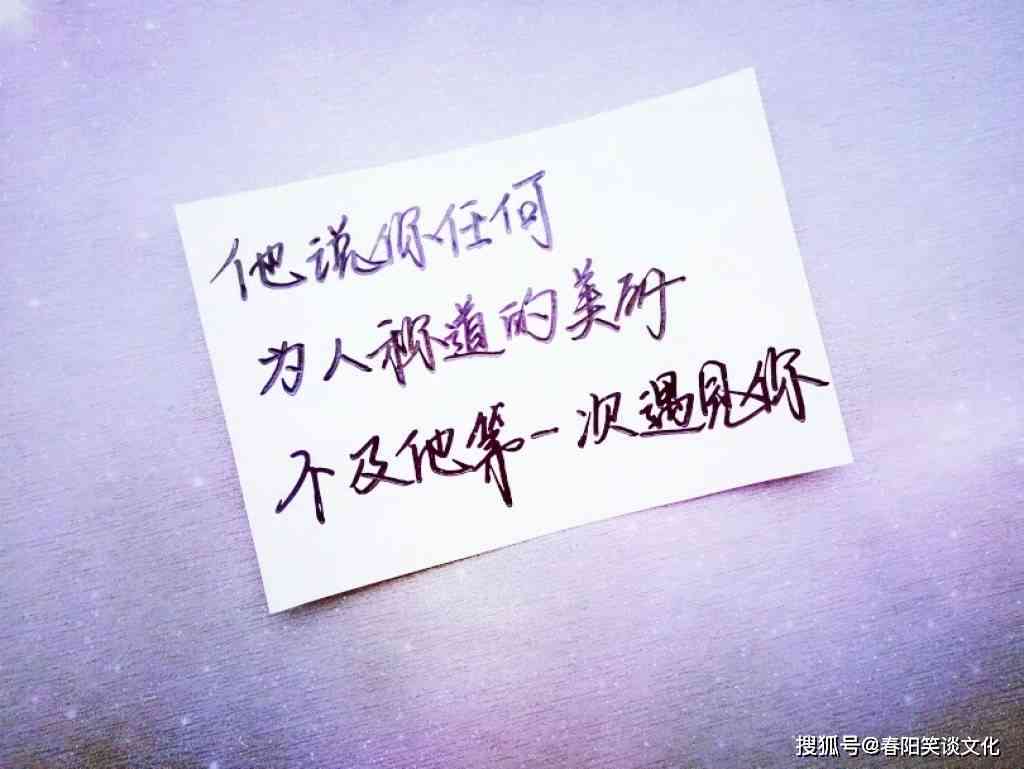 他说你任何
为人称道的美丽
不及他第一次遇见你
搜狐号@春阳笑谈文化